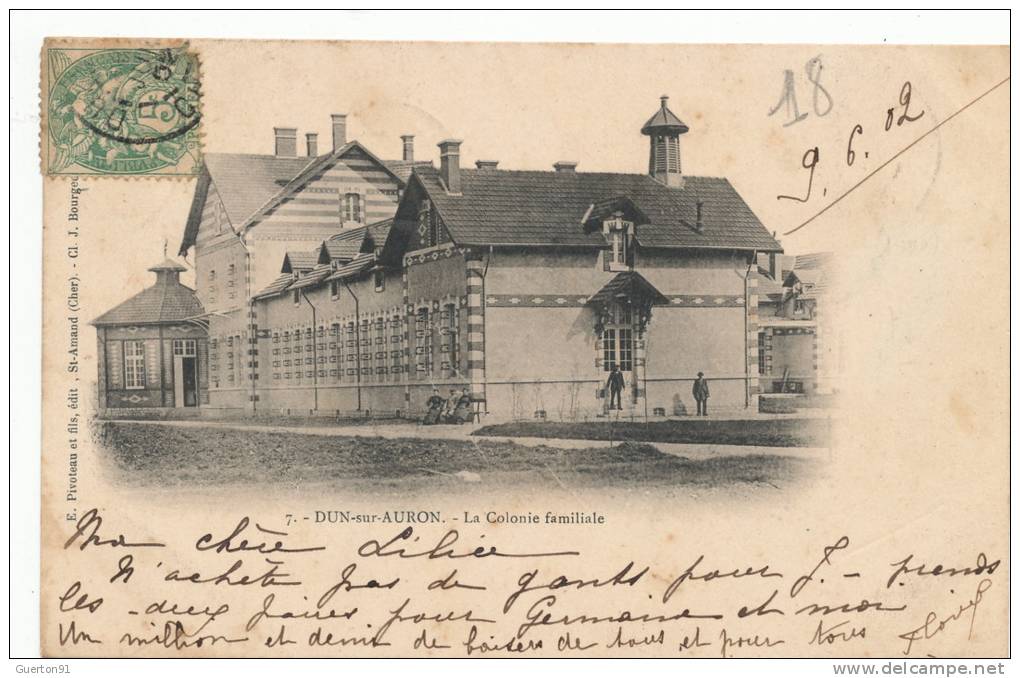 18
9.6.02
E. Pivoteau et fils, édit , St-Amand (Cher). - Cl. J. Bourgeo
7. - DUN-sur-AURON. - La Colonie familiale
Ma chère Lilie
N'achète pas de gants pour J. - prends
les deux paires pour Germaine et moi
Un million et demi de baisers de tous et pour tous
Guerton91
www.delcampe.net